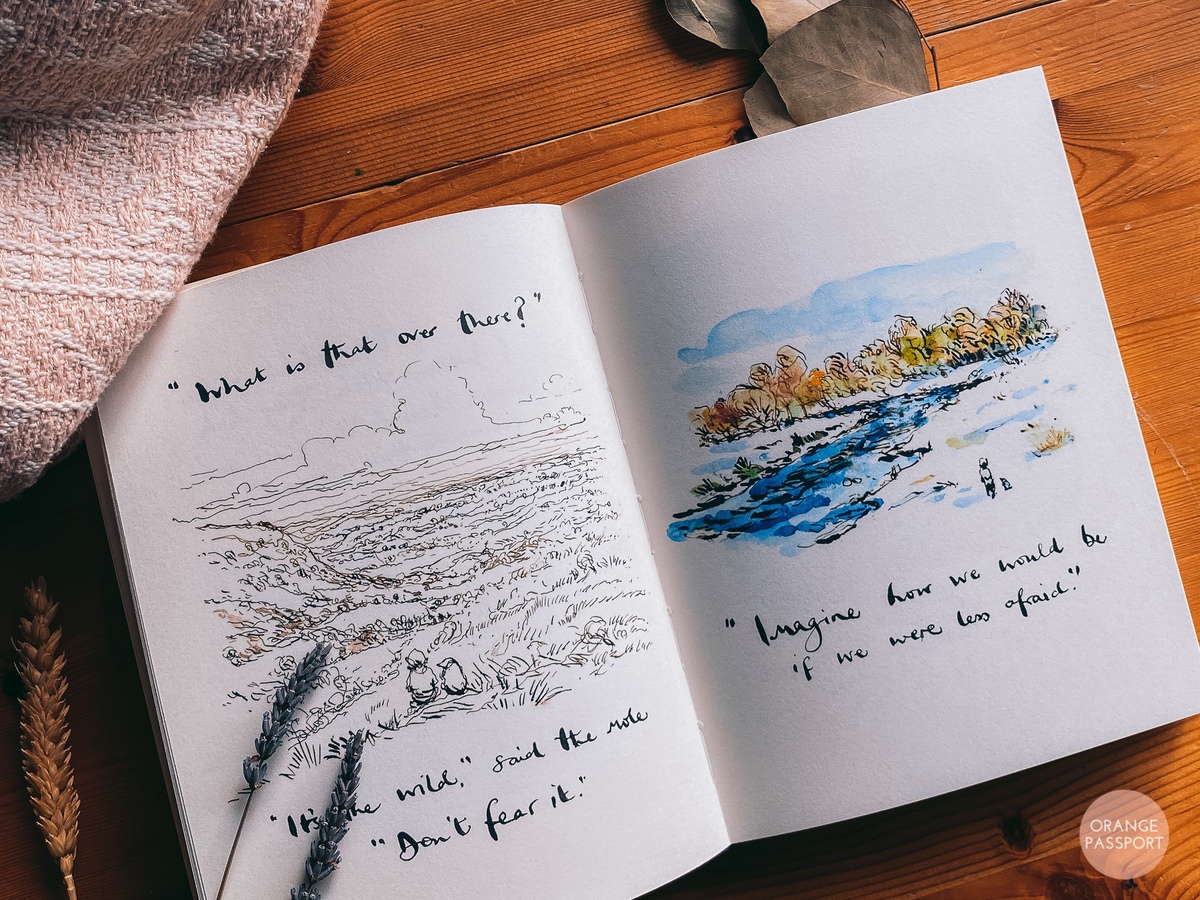 "What is that over there?"
"It's the wild," said the mole
"Don't fear it."
"Imagine how we would be
if we were less afraid."
ORANGE
PASSPORT